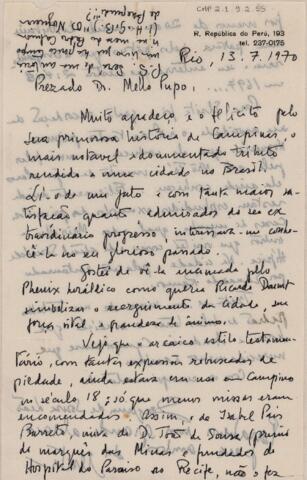 CMP 2.1.9.2.55
R. República do Perú, 193
tel. 237-0175
Rio, 13.7.1970
Prezado Dr. Mello Pupo,
Muito agradeço e o felicito pela
sua primorosa história de Campinas, o
mais notavel e documentado tributo
rendido a uma cidade no Brasil.
Li-o de um jato e com tanta maior sa-
tisfação quanto admirador do seu ex-
traordinário progresso interessava-me conhe-
cê-la no seu glorioso passado.
Gostei de vê-la encimada pelo
Phenix heráldico como queria Ricardo Daunt
simbolizar o ressurgimento da cidade, sua
força vital e grandeza de ânimo.
Vejo que o arcaico estilo testamen-
tário, com tantas expressões rebuscadas de
piedade, ainda estava em uso em Campinas
no século 18; só que menos missas eram
encomendadas. Assim, a de Izabel Pais
Barreto, viuva de D. João de Sousa (primo
do marquês das Minas e fundador do
Hospital do Paraiso no Recife, não o fez